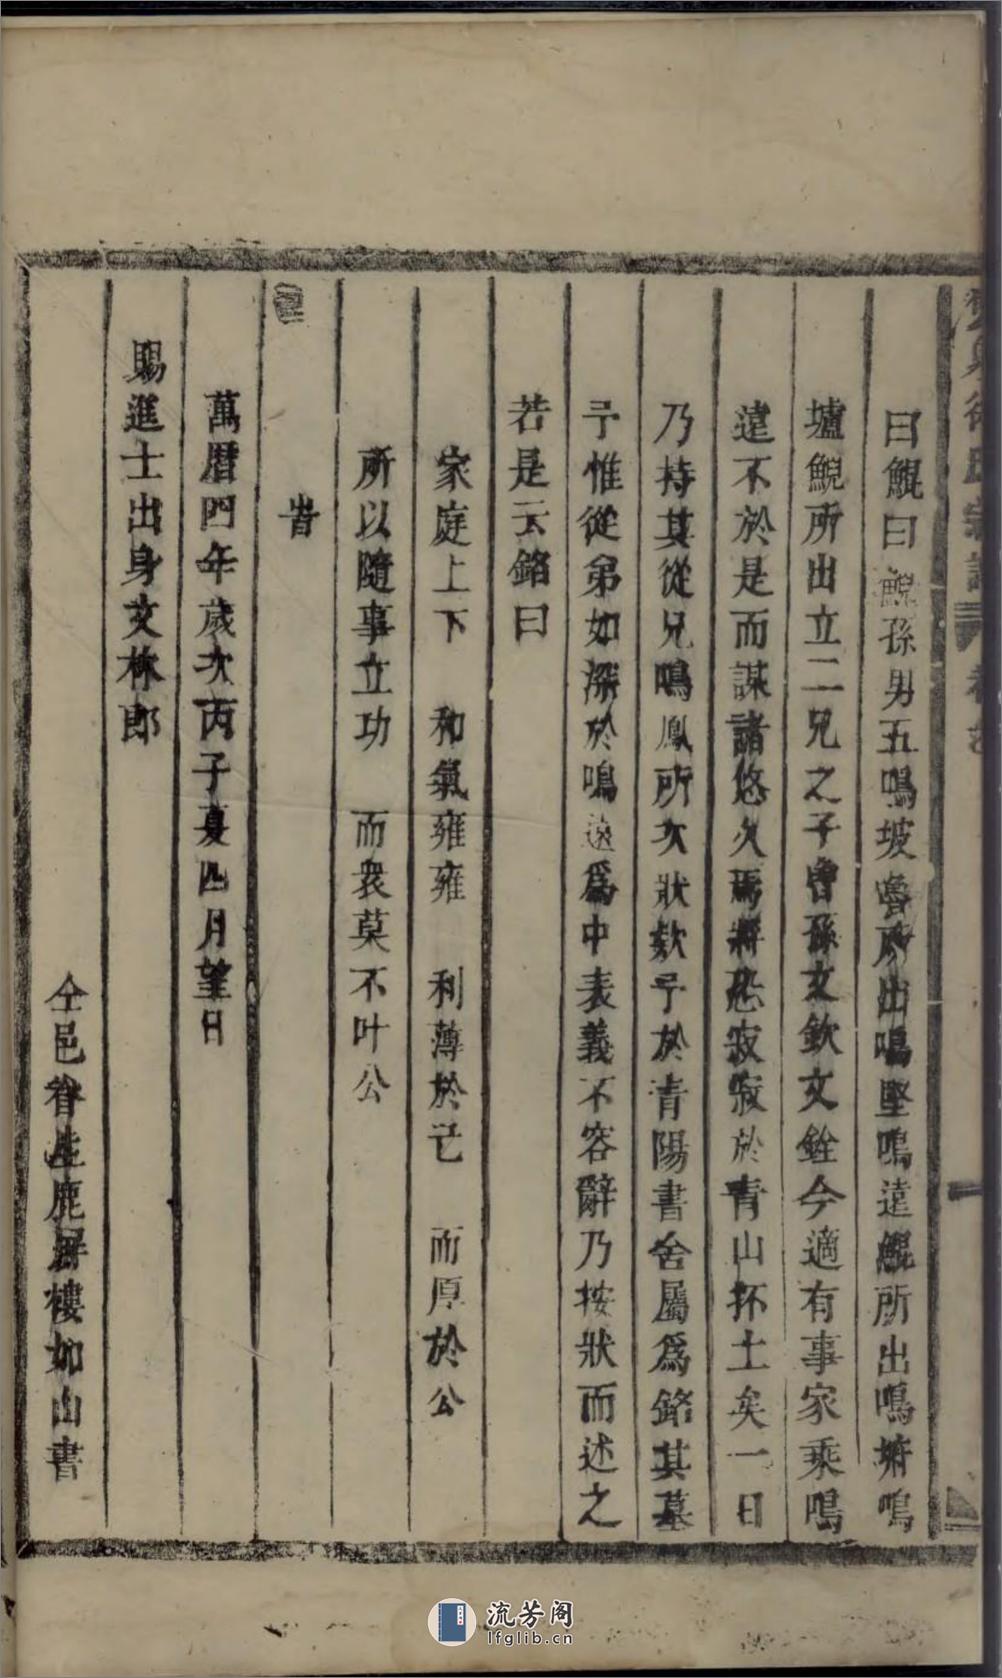 曰鯤曰鯢孫男五鳴坡魯所出鳴堅鳴遠鯤所出鳴墹鳴
壚鯢所出立二兄之子曾孫文欽文銓今適有事家乘鳴
遠不於是而謀諸悠久焉將恐寂寂於青山抔土矣一日
乃持其從兄鳴鳳所次狀欵予於青陽書舍屬爲銘其墓
予惟從弟如深於鳴遠爲中表義不容辭乃按狀而述之
若是云銘曰
家庭上下 和氣雍雍 利薄於己 而原於公
所以隨事立功 而衆莫不叶公
旹
萬曆四年歲次丙子夏四月望日
賜進士出身文林郎
仝邑眷侄鹿屏樓如山書
流芳阁
lfglib.cn